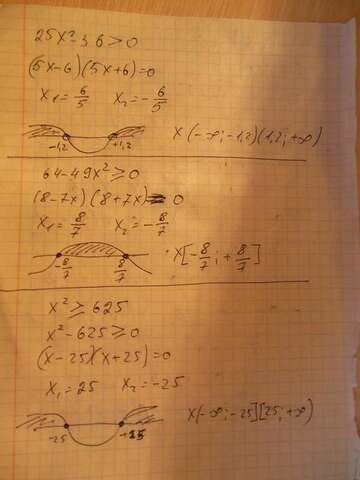 25x²-36>0
(5x-6)(5x+6)=0
x₁=6/5 x₂=-6/5
-1,2 +1,2 x(-∞;-1,2)(1,2;+∞)
64-49x²≥0
(8-7x)(8+7x)=0
x₁=8/7 x₂=-8/7
-8/7 8/7 x[-8/7;+8/7]
x²≥625
x²-625≥0
(x-25)(x+25)=0
x₁=25 x₂=-25
-25 +25 x(-∞;-25][25;+∞)